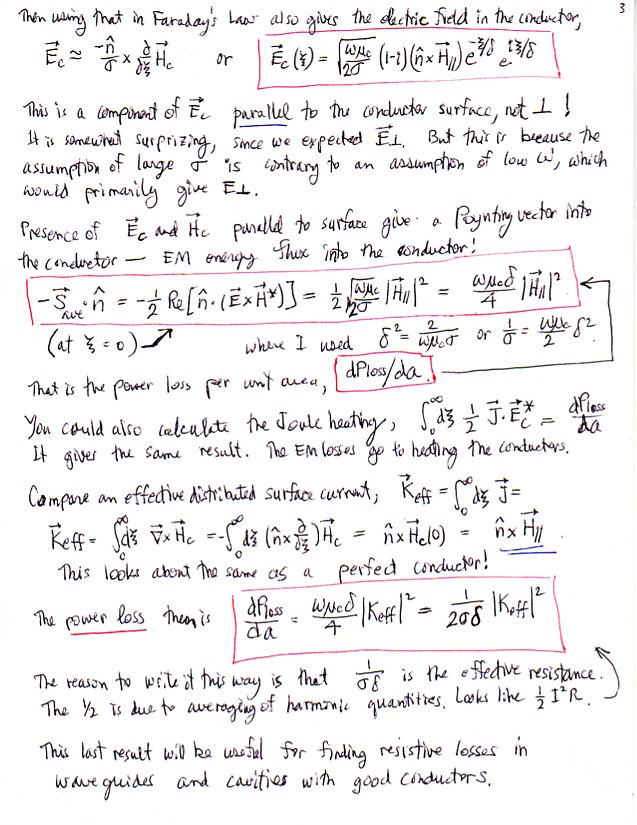 3
Then using that in Faraday's Law also gives the electric field in the conductor,
E⃗c ≈ -n̂/σ × ∂/∂ξ H⃗c or E⃗c(ξ) = √(ωμc/2σ) (1-i)(n̂×H⃗∥) e^(-ξ/δ) e^(iξ/δ)
This is a component of E⃗c parallel to the conductor surface, not ⊥ !
It is somewhat surprizing, since we expected E⃗⊥. But this is because the
assumption of large σ is contrary to an assumption of low ω, which
would primarily give E⊥.
Presence of E⃗c and H⃗c parallel to surface give a Poynting vector into
the conductor — EM energy flux into the conductor!
-S⃗ave·n̂ = -1/2 Re[n̂·(E⃗×H⃗*)] = 1/2 √(ωμc/2σ) |H⃗∥|² = ωμcδ/4 |H⃗∥|²
(at ξ=0) where I used δ² = 2/ωμcσ or 1/σ = ωμc/2 δ².
That is the power loss per unit area, dPloss/da.
You could also calculate the Joule heating, ∫₀^∞ dξ 1/2 J⃗·E⃗c* = dPloss/da
It gives the same result. The EM losses go to heating the conductors.
Compare an effective distributed surface current, K⃗eff = ∫₀^∞ dξ J⃗ =
K⃗eff = ∫₀^∞ dξ ∇⃗×H⃗c = -∫₀^∞ dξ (n̂×∂/∂ξ)H⃗c = n̂×H⃗c(0) = n̂×H⃗∥
This looks about the same as a perfect conductor!
The power loss then is dPloss/da = ωμcδ/4 |Keff|² = 1/2σδ |Keff|²
The reason to write it this way is that 1/σδ is the effective resistance.
The 1/2 is due to averaging of harmonic quantities. Looks like 1/2 I²R.
This last result will be useful for finding resistive losses in
waveguides and cavities with good conductors.